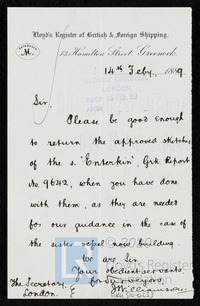 Lloyd's Register of British & Foreign Shipping,
M.
13 Hamilton Street, Greenock,
14th Feby. 1889.
Sir,
Please be good enough
to return the approved sketches
of the s. "Enterkin", Grk Report
No. 9642, when you have done
with them, as they are needed
for our guidance in the case of
the sister vessel now building.
We are Sir
Your obedient servants
for Surveyors
The Secretary,
London, E